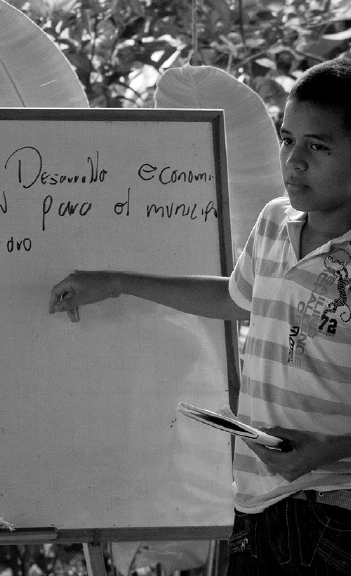 Desarrollo economi
para el municip
dro
72